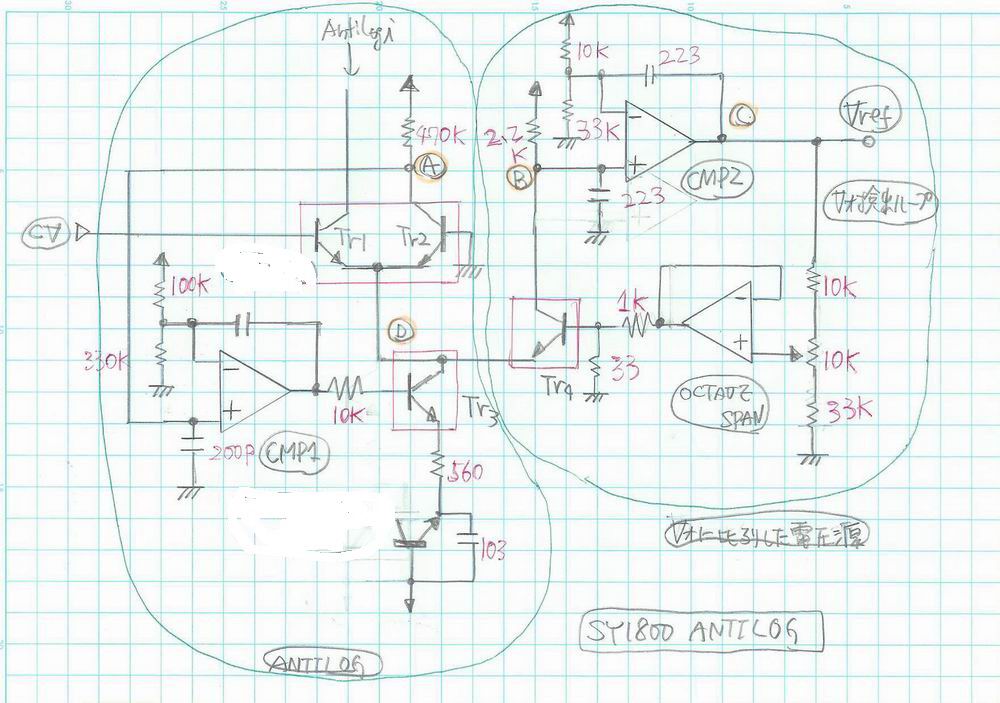 30
25
20
15
10
5
Antilogi
10K
223
470K
2.2
K
33K
C
Vref
A
B
+
CMP2
223
VT検出ループ
CV
Tr1
Tr2
100K
10K
D
1K
330K
+
10K
10K
Tr3
Tr4
33
OCTAVE
SPAN
33K
+
200P
CMP1
560
103
VTに比例した電圧源
SY1800 ANTILOG
ANTILOG